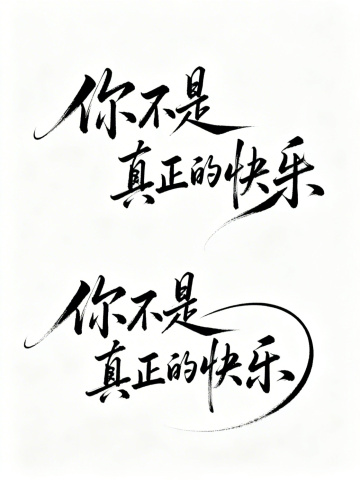 你不是
真正的快乐
你不是
真正的快乐